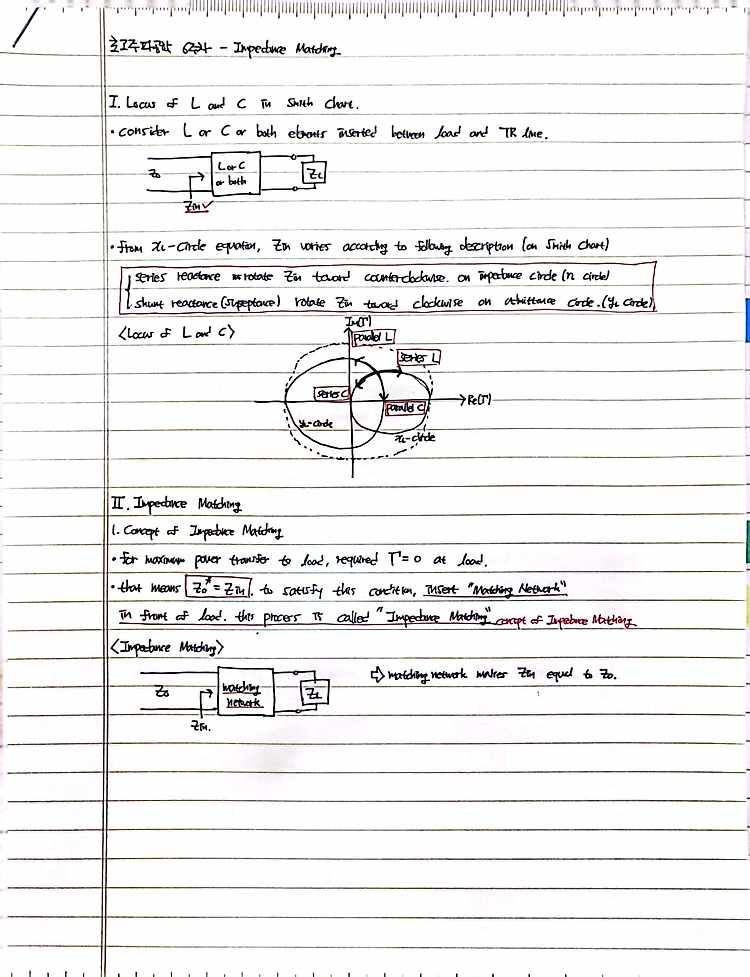 초고주파공학 6주차 - Impedance Matching
I. Locus of L and C in Smith chart.
• consider L or C or both elements inserted between load and TR line.
Z₀
L or C
or both
Z_L
Z_in ✓
• from x_L-circle equation, Z_in varies according to following description (on Smith chart)
series reactance rotate Z_in toward counterclockwise. on impedance circle (r_L circle)
shunt reactance (suseptance) rotate Z_in toward clockwise on admittance circle. (y_L circle)
<Locus of L and C>
Im(Γ)
parallel L
series L
series C
Re(Γ)
parallel C
y_L-circle
x_L-circle
II. Impedance Matching
1. Concept of Impedance Matching
• for maximum power transfer to load, required Γ=0 at load.
• that means Z₀* = Z_in. to satisfy this condition, insert "Matching Network"
in front of load. this process is called "Impedance Matching" concept of Impedance Matching
<Impedance Matching>
Z₀
matching
network
Z_L
Z_in.
⇨ matching network makes Z_in equal to Z₀.